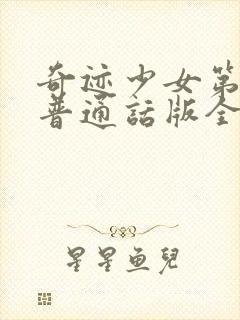 奇迹少女第
普通話版全
星星鱼兒